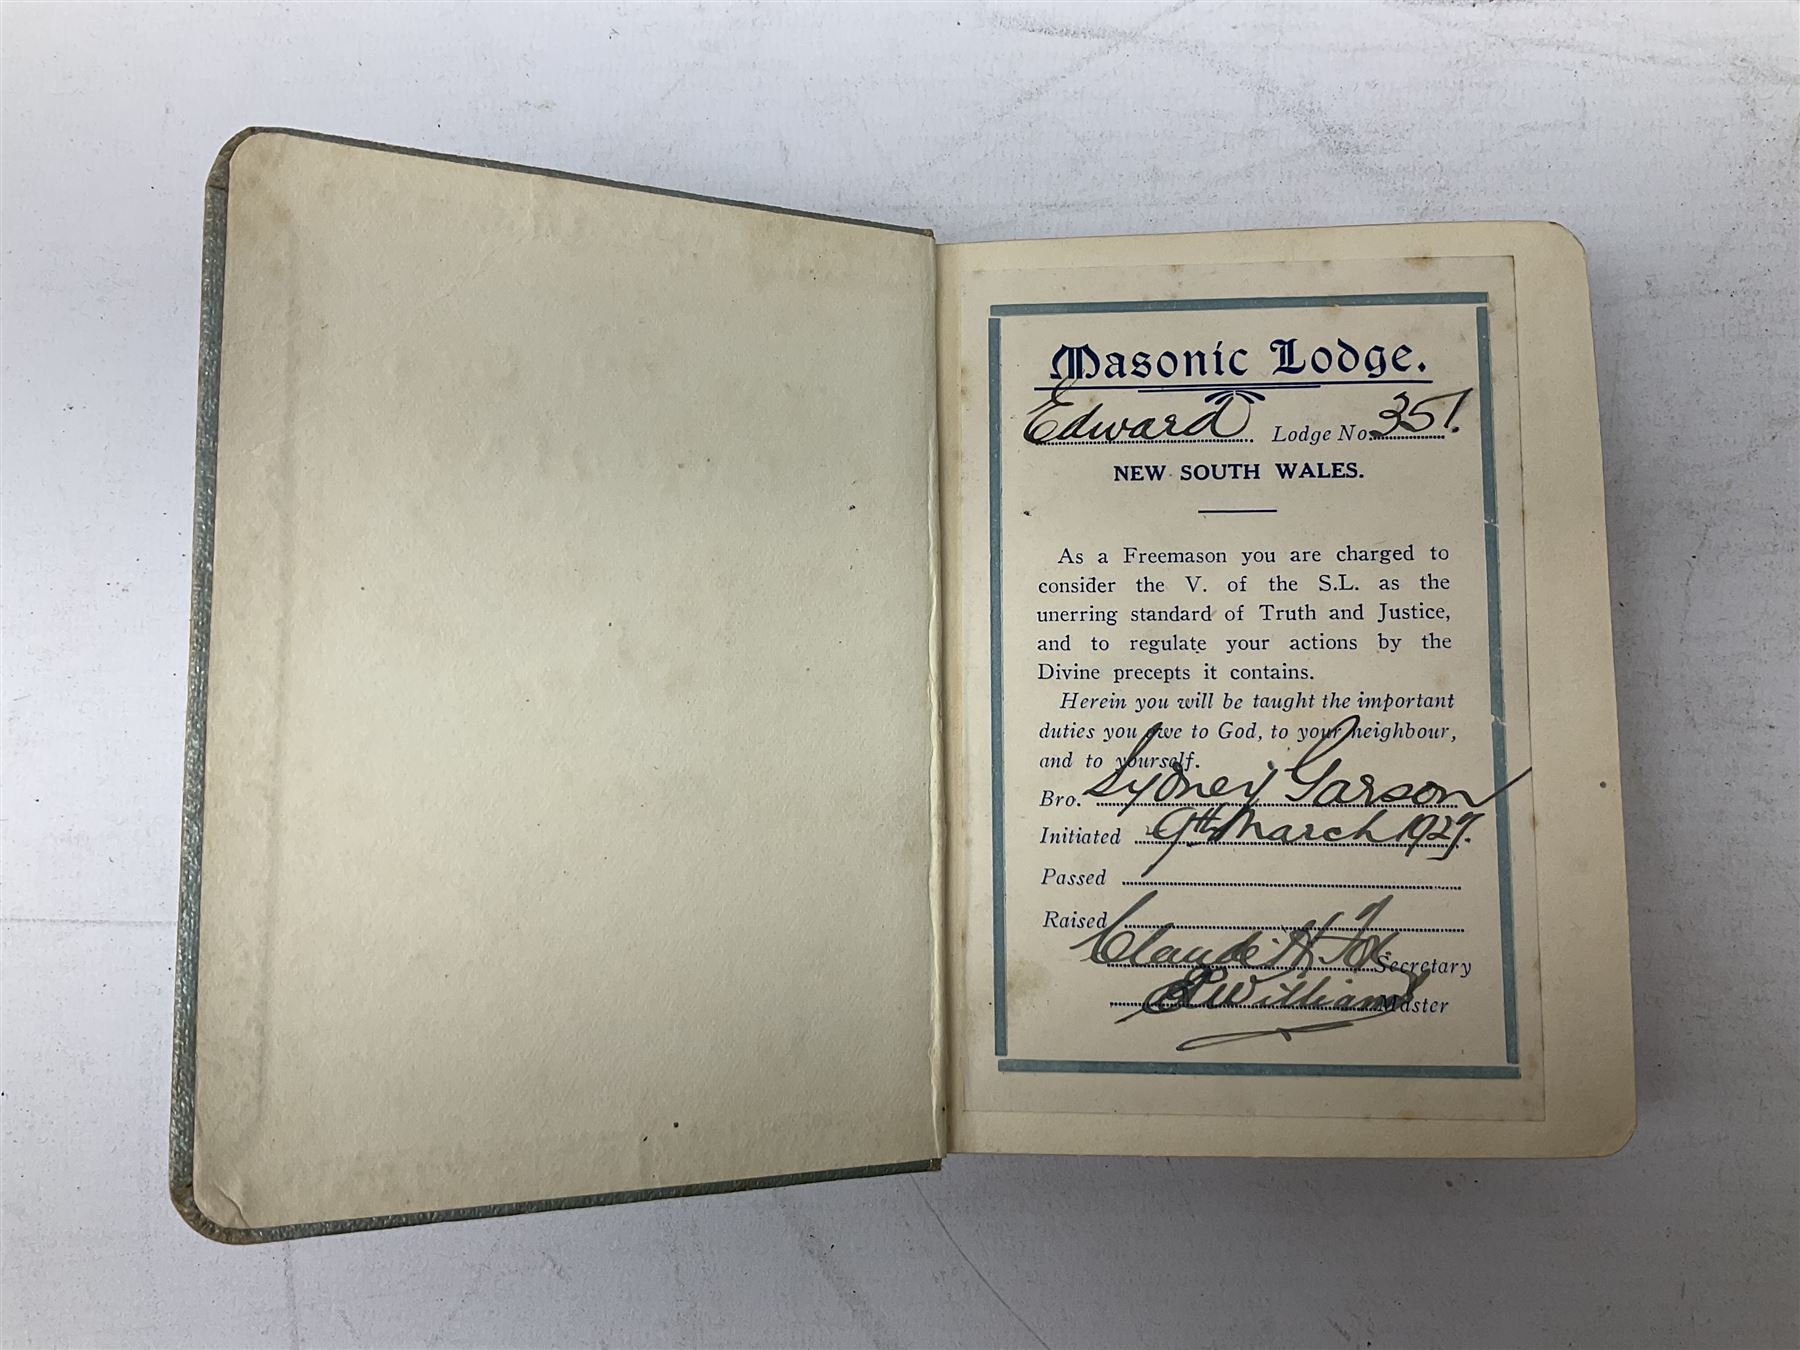 Masonic Lodge.
Edward Lodge No. 351.
NEW SOUTH WALES.
As a Freemason you are charged to
consider the V. of the S.L. as the
unerring standard of Truth and Justice,
and to regulate your actions by the
Divine precepts it contains.
Herein you will be taught the important
duties you owe to God, to your neighbour,
and to yourself.
Bro. Sydney Garson
Initiated 9th March 1927.
Passed
Raised
Claude H. Secretary
Williams Master